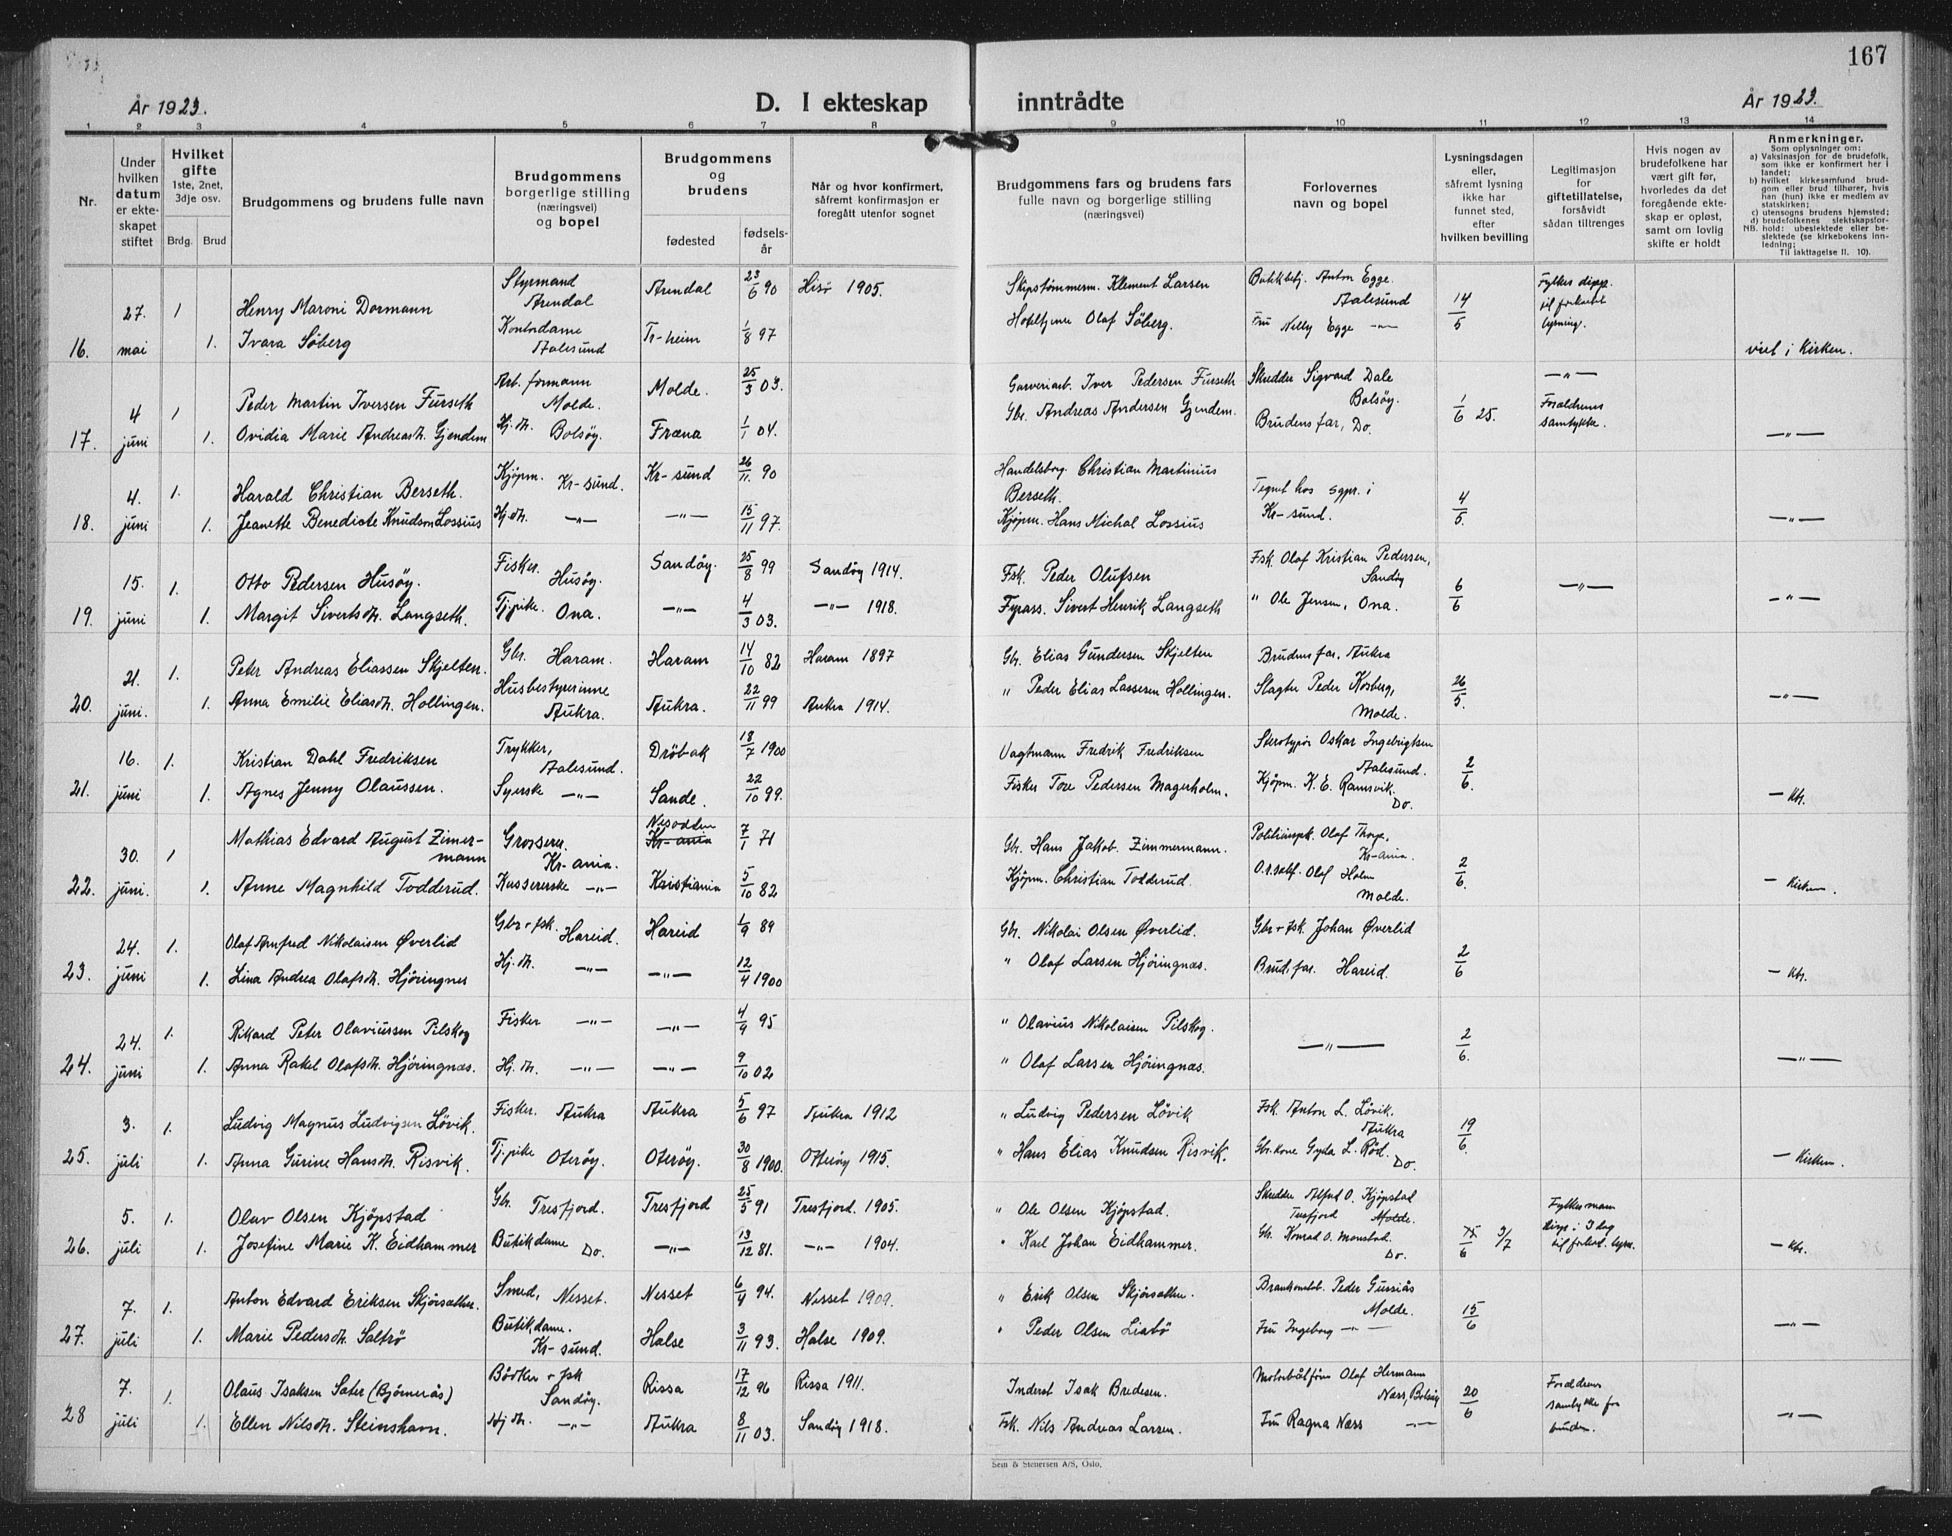 167
År 1923.
D. I ekteskap inntrådte
År 1923.
1 2 3 4 5 6 7 8 9 10 11 12 13 14
Nr.
Under hvilken datum er ekteskapet stiftet
Hvilket gifte 1ste, 2net, 3dje osv.
Brdg. Brud
Brudgommens og brudens fulle navn
Brudgommens borgerlige stilling (næringsvei) og bopel
Brudgommens og brudens
fødested
fødselsår
Når og hvor konfirmert, såfremt konfirmasjon er foregått utenfor sognet
Brudgommens fars og brudens fars fulle navn og borgerlige stilling (næringsvei)
Forlovernes navn og bopel
Lysningsdagen eller, såfremt lysning ikke har funnet sted, efter hvilken bevilling
Legitimasjon for giftetillatelse, forsåvidt sådan tiltrenges
Hvis nogen av brudefolkene har vært gift før, hvorledes da det foregående ekteskap er opløst, samt om lovlig skifte er holdt
Anmerkninger.
Som oplysninger om:
a) Vaksinasjon for de brudefolk, som ikke er konfirmert her i landet;
b) hvilket kirkesamfund brudgom eller brud tilhører, hvis han (hun) ikke er medlem av statskirken;
c) utensogns brudens hjemsted;
d) brudefolkenes slektskapsforhold: ubeslektede eller beslektede (se kirkebokens innledning;
NB. Til iakttagelse II. 10).
16. 27. mai 1 Henry Maroni Dormann Styrmand Arendal Arendal 23/6 90 Hisø 1905. Skipstømmerm. Klement Larsen Butikbetj. Anton Egge Aalesund 14/5 Fylkes disp. til forkortet lysning.
1. Ivara Söberg Kontordame Aalesund Tr-heim 1/8 97 Hoteltjener Olaf Söberg. Fru Nelly Egge —"— viet i Kirken.
17. 4 juni 1 Peder Martin Iversen Furseth Arb. formann Molde. Molde. 25/3 03. Garveriarb. Iver Pedersen Furseth Skredder Sigvard Dale Bolsöy. 1/6 25. —"—
1. Ovidia Marie Andreasdt. Gjendem Hj. dt. Bolsöy. Fræna 1/1 04. Gbr. Andreas Andersen Gjendem. Brudens far, Do. Forældrenes samtykke. —"—
18. 4. juni 1. Harald Christian Berseth. Kjöpm. Kr-sund. Kr-sund 26/11 90 Handelsborg. Christian Martinius Berseth. Tegnet hos sgpr. i Kr-sund. 4/5
1. Jeanette Benedicte Knudson Lossius Hj. dt. —"— —"— 15/11 97. Kjöpm. Hans Michal Lossius —"—
19. 15. juni 1. Otto Pedersen Husöy. Fisker. Husöy. Sandöy. 25/8 99 Sandöy 1914. Fsk. Peder Olufsen Fsk. Olaf Kristian Pedersen, Sandöy 6/6 —"—
1. Margit Sivertsdt. Langseth. Tj. pike. Ona. —"— 4/3 03. —"— 1918. Fyrass. Sivert Henrik Langseth " Ole Jensen, Ona. —"—
20. 21. juni. 1. Peter Andreas Eliassen Skjelten. Gbr. Haram. Haram 14/10 82 Haram 1897 Gbr. Elias Gundersen Skjelten Brudens far. Aukra 26/5.
1. Anna Emilie Eliasdt. Hollingen. Husbestyrerinne Aukra. Aukra. 22/11 99 Aukra 1914. " Peder Elias Lassesen Hollingen. Slagter Peder Kosberg, Molde. —"—
21. 16. juni 1. Kristian Dahl Fredriksen Trykker, Aalesund. Dröbak 18/7 1900 Vagtmann Fredrik Fredriksen Sterotypör Oskar Ingebrigtsen Aalesund. 2/6.
1. Agnes Jenny Olaussen. Syerske —"— Sande. 22/10 99. Fisker Tore Pedersen Magerholm. Kjöpm. K. E. Ramsvik. Do. — Kk.
22. 30. juni. 1 Mathias Edvard August Zimermann Grosserer. Kr-ania. Nesodden Kr-ania 7/1 71 Gbr. Hans Jakob Zimmermann. Olaf Thorp, Kr-ania. 2/6.
1. Anne Magnhild Todderud. Kassererske —"— Kristiania 5/10 82 Kjöpm. Christian Todderud. O.r.sakf. Olaf Holm Molde. — Kirken.
23. 24. juni 1. Olaf Arnfred Nikolaisen Øverlid Gbr + fsk. Hareid. Hareid 1/9 89 Gbr. Nikolai Olsen Øverlid. Gbr + fsk. Johan Øverlid 2/6
1. Lina Andrea Olafsdt. Hjöringnes Hj. dt. —"— —"— 12/4 1900 " Olaf Larsen Hjöringnæs. Brud. far. Hareid. — Kk.
24. 24. juni 1. Rikard Peter Olaviussen Pilskog Fisker —"— —"— 4/9 95 " Olavius Nikolaisen Pilskog. —"— 2/6.
1. Anna Rakel Olafsdt. Hjöringnæs. Hj. dt. —"— —"— 9/10 02 " Olaf Larsen Hjöringnæs. —"—
25. 3. juli 1. Ludvig Magnus Ludvigsen Lövik. Fisker. Aukra Aukra 5/6 97 Aukra 1912 " Ludvig Pedersen Lövik Fsk. Anton L. Lövik. Aukra 19/6
1. Anna Gurine Hansdt. Risvik. Tj. pike Oteröy. Oteröy. 30/8 1900. Otteröy 1915. " Hans Elias Knudsen Risvik. Gbr. kone Gyda L. Röd. Do. — Kirken.
26. 5. juli 1. Olav Olsen Kjöpstad Gbr. Tresfjord. Tresfjord 25/5 91 Tresfjord. 1905. " Ole Olsen Kjöpstad. Skredder Alfred O. Kjöpstad Tresfjord Molde. 6 3/7 Fylkesmann disp. i 3 dag til forkort. lysn.
1. Josefine Marie K. Eidhammer Butikdame Do. —"— 13/12 81. —"— 1904. " Karl Johan Eidhammer. Gbr. Konrad O. Monstad. Do. — Kk.
27. 7. juli 1. Anton Edvard Eriksen Skjörsætter. Smed, Nesset. Nesset 6/4 94. Nesset 1909. " Erik Olsen Skjörsætter. Peder Gussiås Molde. 15/6
1. Marie Pedersdt. Saltrö Butikdame. Kr-sund. Halse 3/11 93. Halse 1909. " Peder Olsen Liabö Fru Ingeborg —"— —"—
28 7. juli 1. Olaus Isaksen Sater (Björnerås) Bödker + fsk Sandöy. Rissa 17/12 96 Rissa 1911. Inderst Isak Bredesen. Motorbåtförer Olaf Hermann Næss, Bolsöy 20/6 Forældrenes samtykke for bruden.
1. Ellen Nilsdt. Steinshavn. Hj dt. —"— Aukra 8/11 03. Sandöy 1918. Fsk. Nils Andreas Larsen. Fru Ragna Næss —"— —"—
Sem & Stenersen A/S, Oslo.